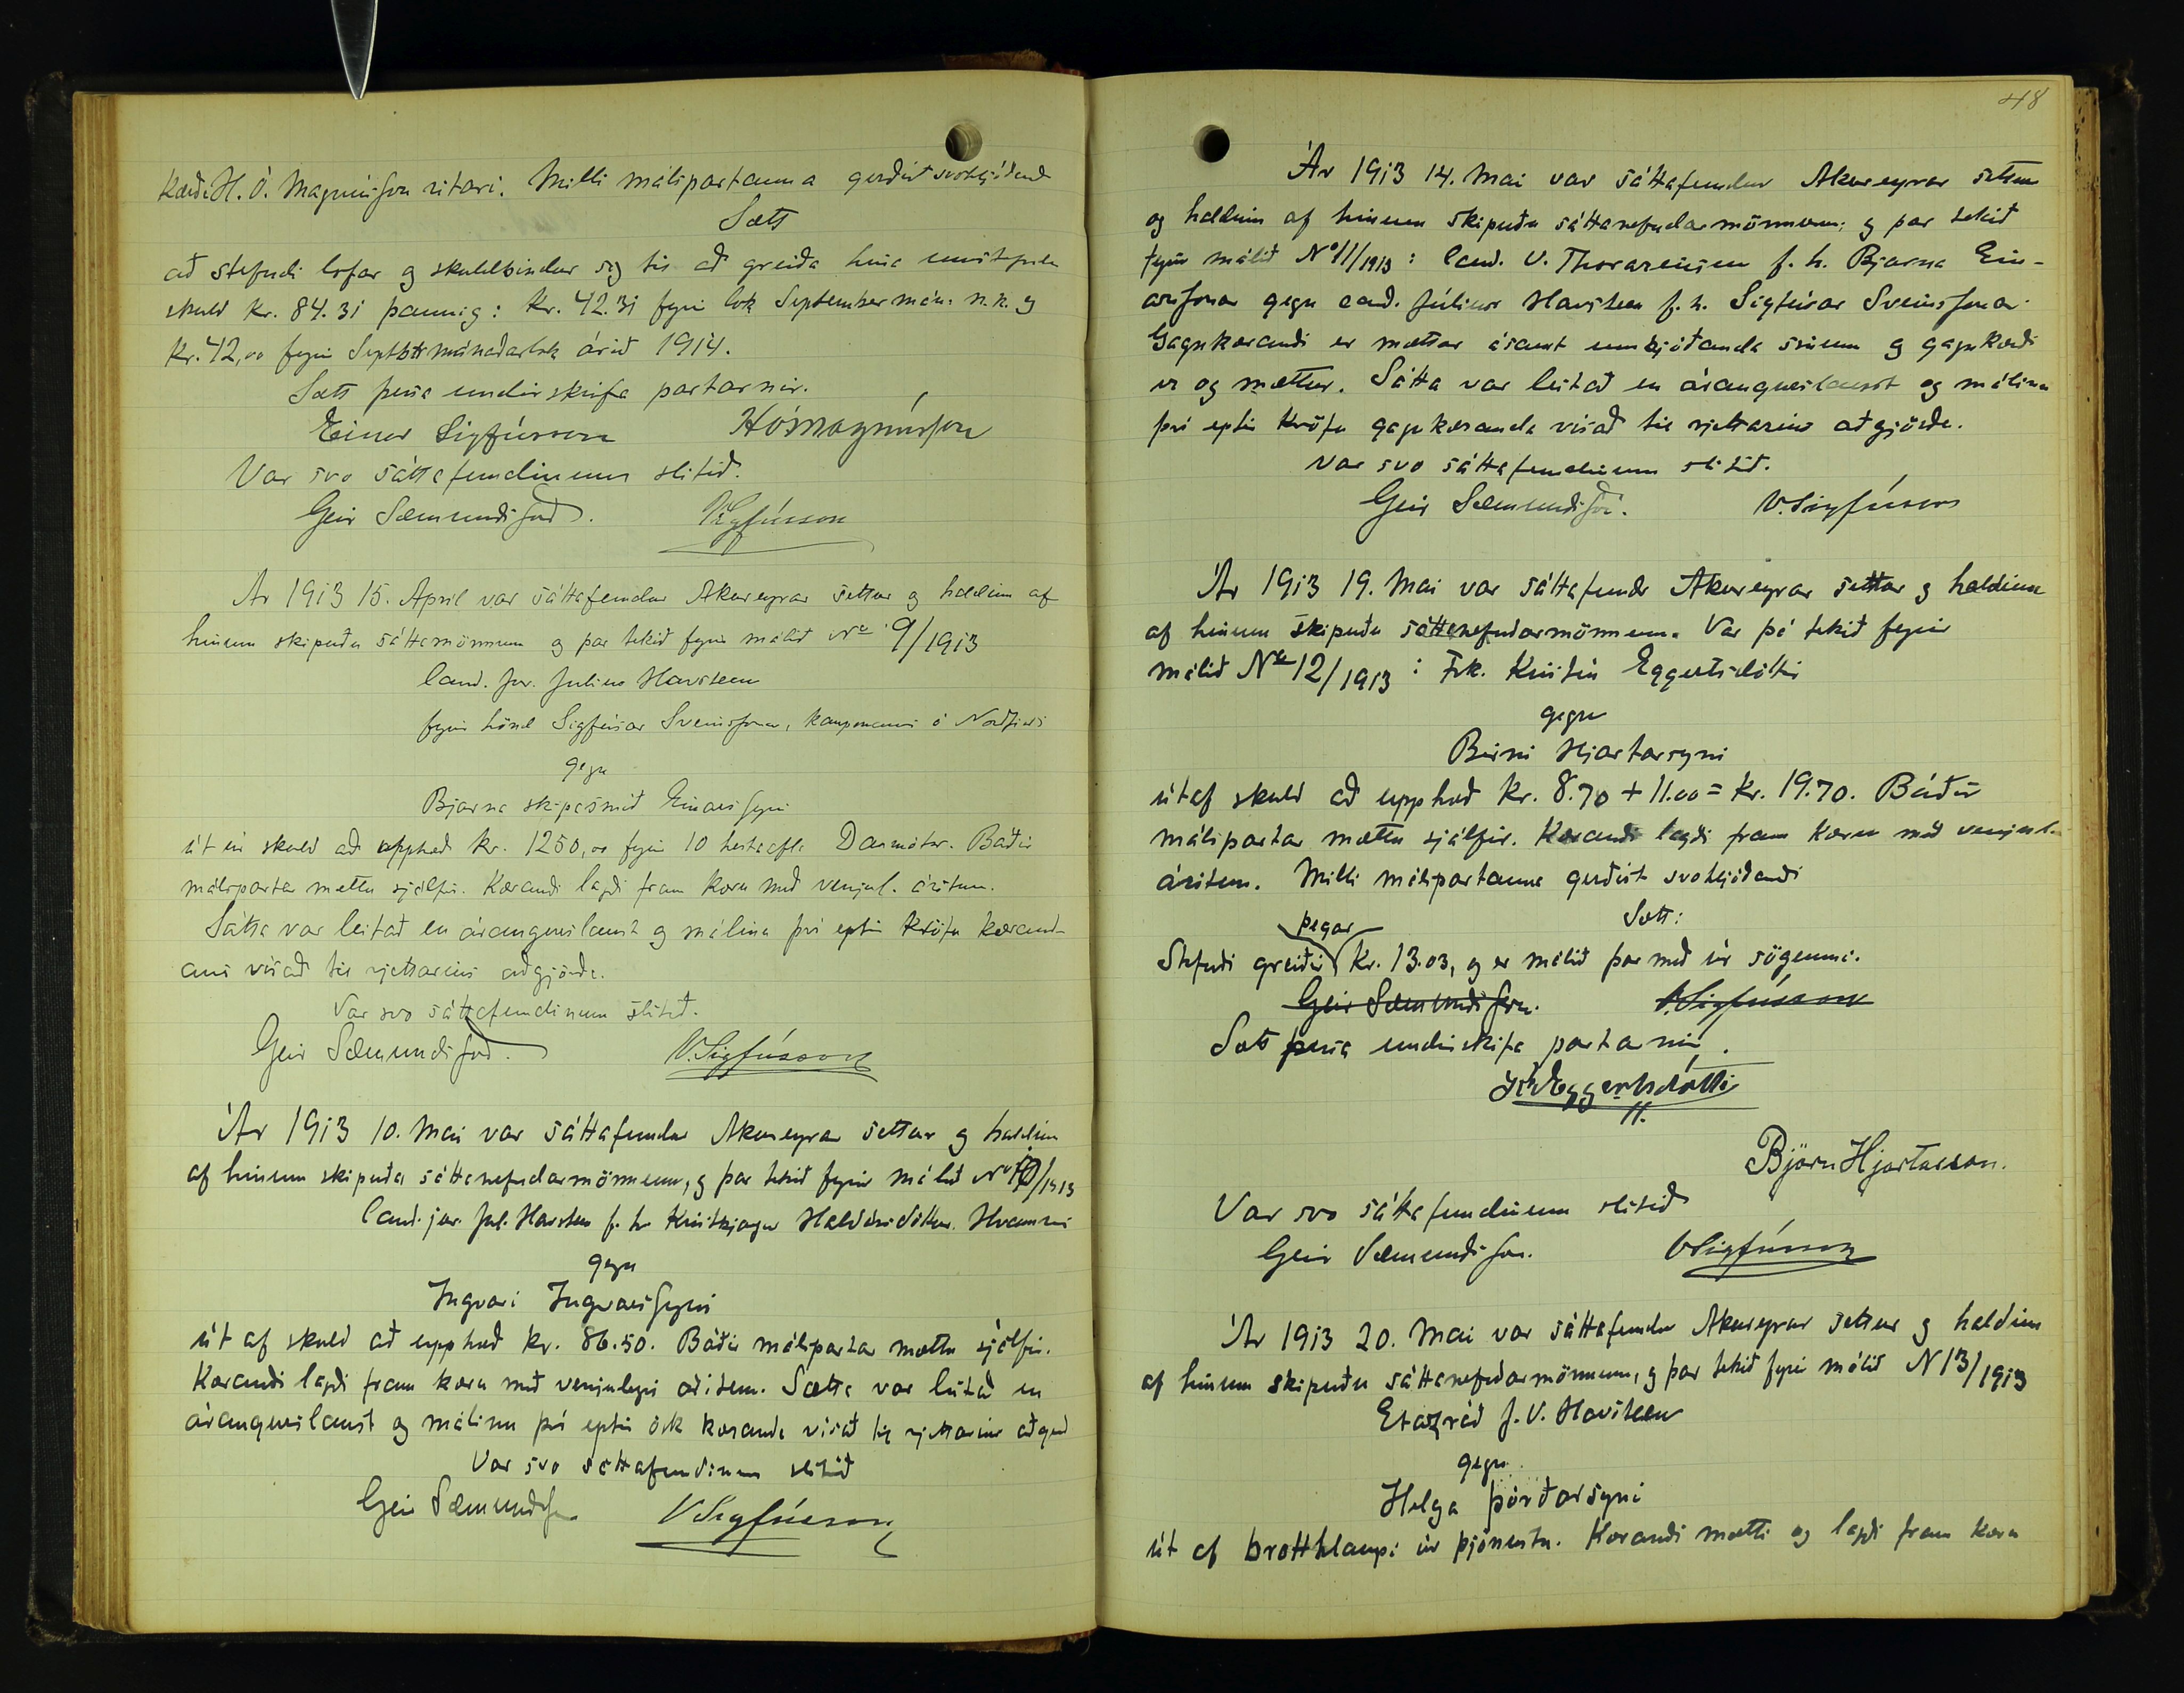 kærði H. Ó. Magnússon ritari. Milli málspartanna gerðist svohljóðandi
Sætt
að stefndi lofar og skuldbindur sig til að greiða hina umstefndu
skuld kr. 84.31 þannig: kr. 42.31 fyrir lok September mán. n.k. og
kr. 42,00 fyrir Septbr mánaðarlok árið 1914.
Sætt þessa undirskrifa partarnir.
Einar Sigfússon HÓMagnússon
Var svo sáttafundinum slitið.
Geir Sæmundsson. VSigfússon
Ár 1913 15. April var sáttafundur Akureyrar settur og haldinn af
hinum skipuðu sáttamönnum og þar tekið fyrir málið No 9/1913
Cand. jur. Julius Havsteen
fyrir hönd Sigfúsar Sveinssonar, kaupmanns á Norðfirði
gegn
Bjarna skipasmið Einarssyni
út úr skuld að upphæð kr. 1250,00 fyrir 10 hestafla Danmótor. Báðir
málspartar mættu sjálfir. Kærandi lagði fram kæru með venjul. áritun.
Sátta var leitað en árangurslaust og málinu því eptir kröfu kærand-
ans vísað til rjettarins aðgjörða.
Var svo sáttafundinum slitið.
Geir Sæmundsson. V.Sigfússon
Ár 1913 10. Mai var sáttafundur Akureyrar settur og haldinn
af hinum skipuðu sáttanefndarmönnum, og þar tekið fyrir málið No 10/1913
Cand. jur. Júl. Havsteen f. h. Kristbjargar Halldórsdóttur Hvammi
gegn
Ingvari Ingvarssyni
út af skuld að upphæð kr. 86.50. Báðir málspartar mættu sjálfir.
Kærandi lagði fram kæru með venjulegri áritun. Sátta var leitað en
árangurslaust og málinu því eptir ósk kæranda vísað til rjettarins aðgerð
Var svo sáttafundinum slitið
Geir Sæmundsson VSigfússon
48
Ár 1913 14. Mai var sáttafundur Akureyrar settur
og haldinn af hinum skipuðu sáttanefndarmönnum; og þar tekið
fyrir málið No 11/1913: Cand. V. Thorarensen f. h. Bjarna Ein-
arssonar gegn cand. Júlíus Havsteen f. h. Sigfúsar Sveinssonar.
Gagnkærandi er mættur ásamt umbjóðanda sínum og gagnkærði
er og mættur. Sátta var leitað en árangurslaust og málinu
því eptir kröfu gagnkæranda vísað til rjettarins aðgjörða.
Var svo sáttafundinum slitið.
Geir Sæmundsson. V.Sigfússon
Ár 1913 19. Mai var sáttafundr Akureyrar settur og haldinn
af hinum skipuðu sáttanefndarmönnum. Var þá tekið fyrir
málið No 12/1913: Frk. Kristín Eggertsdóttir
gegn
Birni Hjartarsyni
útaf skuld að upphæð kr. 8.70 + 11.00 = kr. 19.70. Báðir
málspartar mættu sjálfir. Kærandi lagði fram kæru með venjul.
áritun. Milli málspartanna gerðist svohljóðandi
Sætt:
þegar
Stefndi greiðir kr. 13.03, og er málið þar með úr sögunni.
Geir Sæmundsson. V.Sigfússon
Sætt þessa undirskrifa partarnir.
Kr. Eggertsdóttir
Björn Hjartarson.
Var svo sáttafundinum slitið
Geir Sæmundsson. VSigfússon
Ár 1913 20. Mai var sáttafundur Akureyrar settur og haldinn
af hinum skipuðu sáttanefndarmönnum, og þar tekið fyrir málið N 13/1913
Etazráð J. V. Havsteen
gegn
Helga Þórðarsyni
út af brotthlaupi úr þjónustu. Kærandi mætti og lagði fram kæru